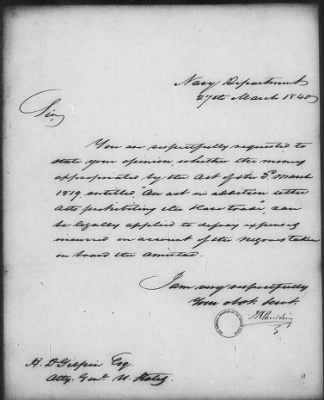 Navy Department
27th March 1840
Sir,
You are respectfully requested to
state your opinion, whether the money
appropriated by the Act of the 3d March
1819, entitled, An act in addition to the
Acts prohibiting the Slave trade, can
be legally applied to defray expenses
incurred on account of the Negroes taken
on board the Amistad.
I am very respectfully
Your obt. Servt.
JK Paulding
H. D. Gilpin Esq.
Atty. Genl. U. States.